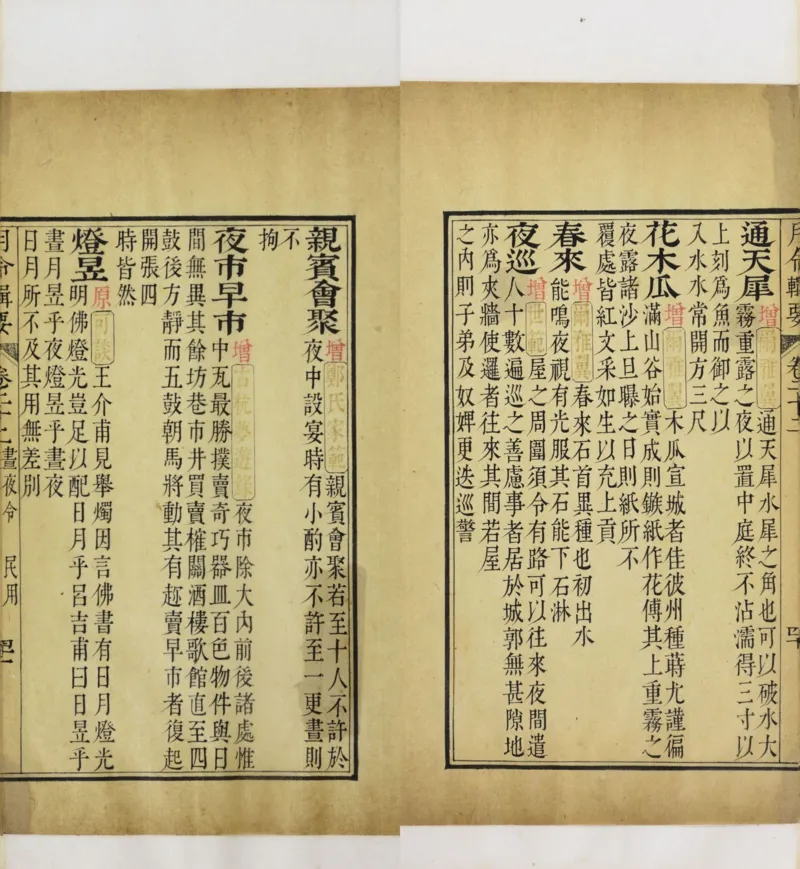 月令輯要 卷二十二 四十
通天犀 增 爾雅翼 通天犀水犀之角也可以破水大
霧重露之夜以置中庭終不沾濡得三寸以
上刻爲魚而御之以
入水水常開方三尺
花木瓜 增 爾雅翼 木瓜宣城者佳彼州種蒔尤謹徧
滿山谷始實成則鏃紙作花傅其上重霧之
夜露諸沙上旦曝之日則紙所不
覆處皆紅文采如生以充上貢
春來 增 爾雅翼 春來石首異種也初出水
能鳴夜視有光服其石能下石淋
夜巡 增 世範 屋之周圍須令有路可以往來夜間遣
人十數遍巡之善慮事者居於城郭無甚隙地
亦爲夾牆使邏者往來其間若屋
之內則子弟及奴婢更迭巡警
親賓會聚 增 鄭氏家範 親賓會聚若至十人不許於
夜中設宴時有小酌亦不許至一更晝則
不
拘
夜市早市 增 古杭夢遊錄 夜市除大內前後諸處惟
中瓦最勝撲賣奇巧器皿百色物件與日
間無異其餘坊巷市井買賣榷關酒樓歌館直至四
鼓後方靜而五鼓朝馬將動其有趂賣早市者復起
開張四
時皆然
燈昱 原 可談 王介甫見舉燭因言佛書有日月燈光
明佛燈光豈足以配日月乎呂吉甫曰日昱乎
晝月昱乎夜燈昱乎晝夜
日月所不及其用無差別
月令輯要 卷二十二 晝夜令 民用 四十一